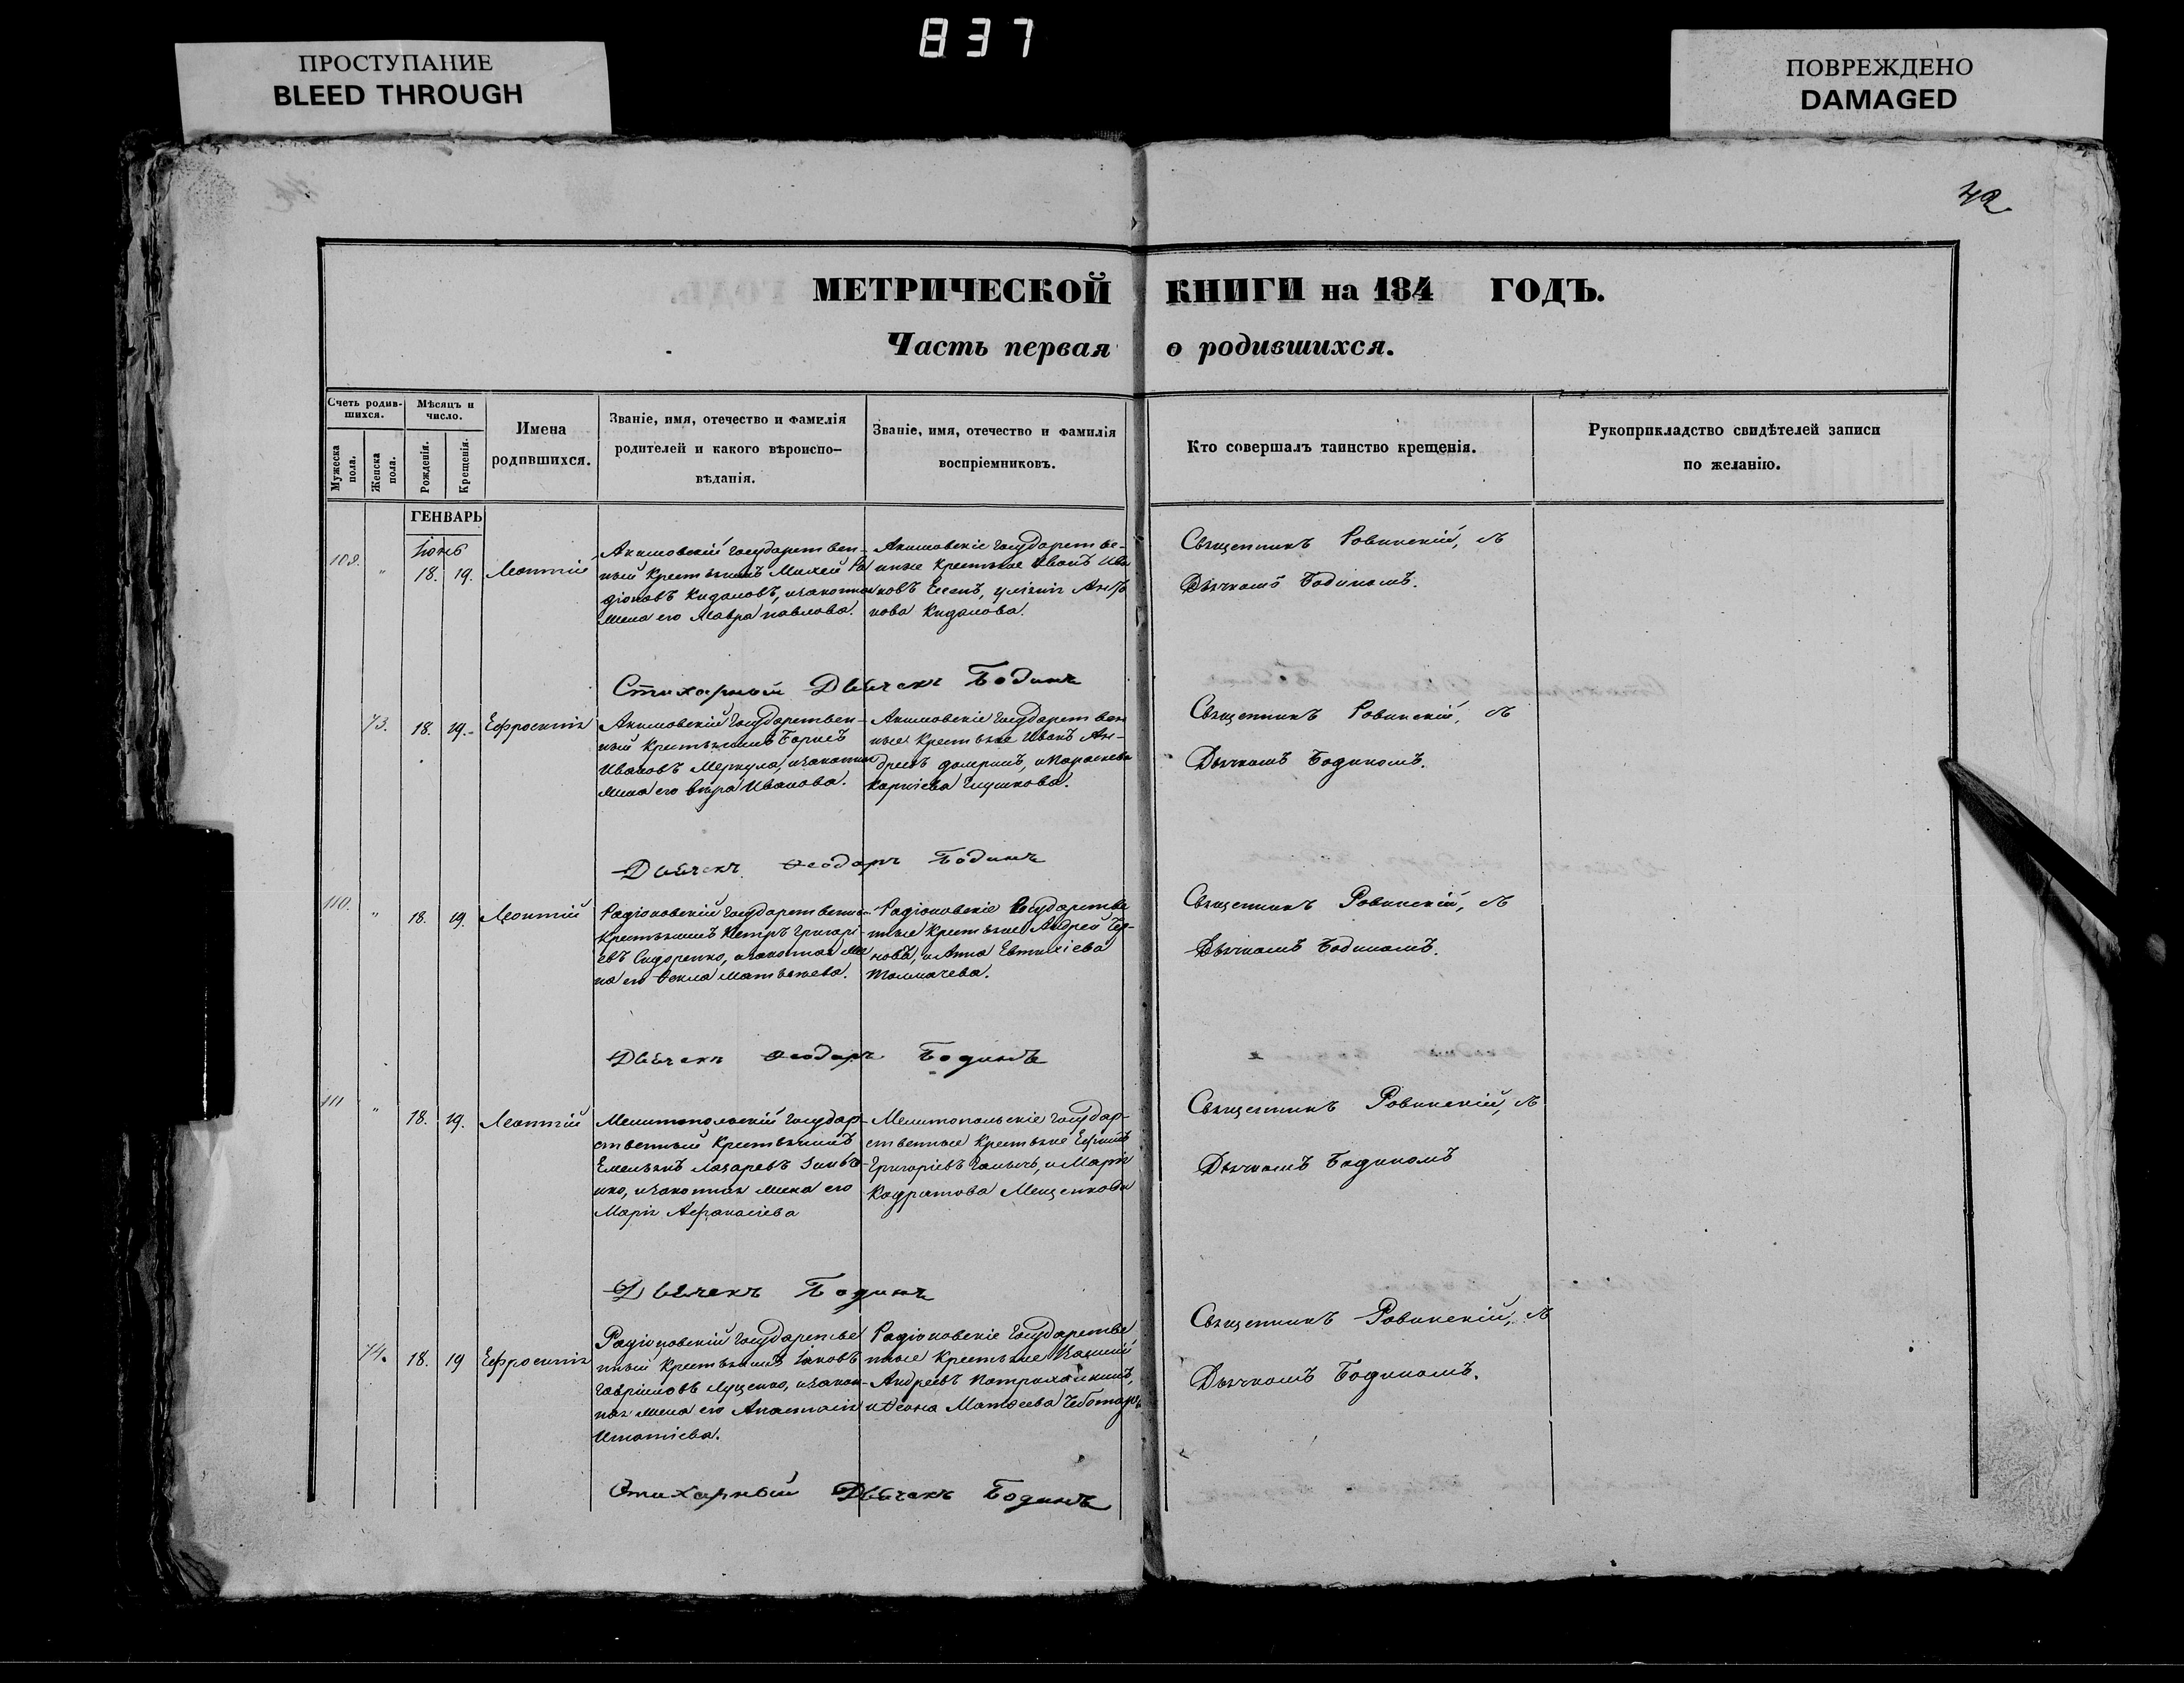 837
ПРОСТУПАНИЕ
BLEED THROUGH
ПОВРЕЖДЕНО
DAMAGED
42
МЕТРИЧЕСКОЙ КНИГИ на 184 ГОДЪ.
Часть первая о родившихся.
Счетъ родив-
шихся.
Мужеска
пола.
Женска
пола.
Мѣсяцъ и
число.
Рожденія.
Крещенія.
Имена
родившихся.
Званіе, имя, отечество и фамилія
родителей и какого вѣроиспо-
вѣданія.
Званіе, имя, отечество и фамилія
воспріемниковъ.
Кто совершалъ таинство крещенія.
Рукоприкладство свидѣтелей записи
по желанію.
ГЕНВАРЬ
109. " 18. 19. Леонтій
Акимовскій Государствен-
ный Крестьянинъ Михей Ра
діоновъ Кидаловъ, и законная
жена его Мавра Павлова.
Акимовскіе Государстве-
нные Крестьяне Иванъ Ива
нова Кидалова.
Священникъ Ровинскій, съ
Дьячкомъ Бодиномъ.
Стихарный Дьячекъ Бодинъ
73. 18. 19. Ефросинія
Акимовскій Государствен-
ный Крестьянинъ
Ивановъ Меркула, и законная
жена его Вѣра Иванова.
Акимовскіе Государствен
ные Крестьяне Иванъ Ан-
дреевъ и Параскева
Карпіева Глушкова.
Священникъ Ровинскій, съ
Дьячкомъ Бодиномъ.
Дьячекъ Ѳеодоръ Бодинъ
110. " 18. 19. Леонтій
Радіоновскій Государственный
Крестьянинъ Петръ Григорі-
евъ Сидоренко, и законная же
на его Ѳекла Матвѣева.
Радіоновскіе Государстве
нные Крестьяне Андрей Чер-
новъ, и Анна Евтихіева
Толмачева.
Священникъ Ровинскій, съ
Дьячкомъ Бодиномъ.
Дьячекъ Ѳеодоръ Бодинъ
111 " 18. 19. Леонтій
Мелитопольскій Государ-
ственный Крестьянинъ
Емельянъ Лазаревъ
нко, и законная жена его
Марія Афанасіева
Мелитопольскіе Государ-
ственные Крестьяне Ефимъ
Григоріевъ и Марія
Кодратова Мещенкова
Священникъ Ровинскій, съ
Дьячкомъ Бодиномъ
Дьячекъ Бодинъ
74. 18. 19 Ефросинія
Радіоновскій Государстве
нный Крестьянинъ Іаковъ
Гавріиловъ Луценко, и закон-
ная жена его Анастасія
Игнатіева.
Радіоновскіе Государстве
нные Крестьяне
Андреевъ
Матѳеева
Священникъ Ровинскій, съ
Дьячкомъ Бодиномъ.
Стихарный Дьячекъ Бодинъ